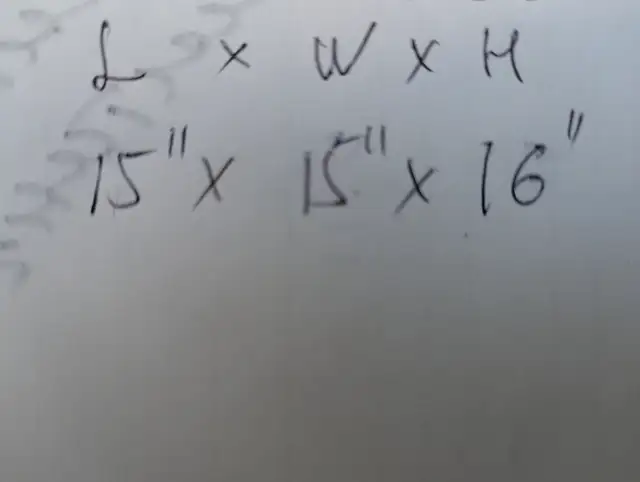 L x W x H
15" x 15" x 16"